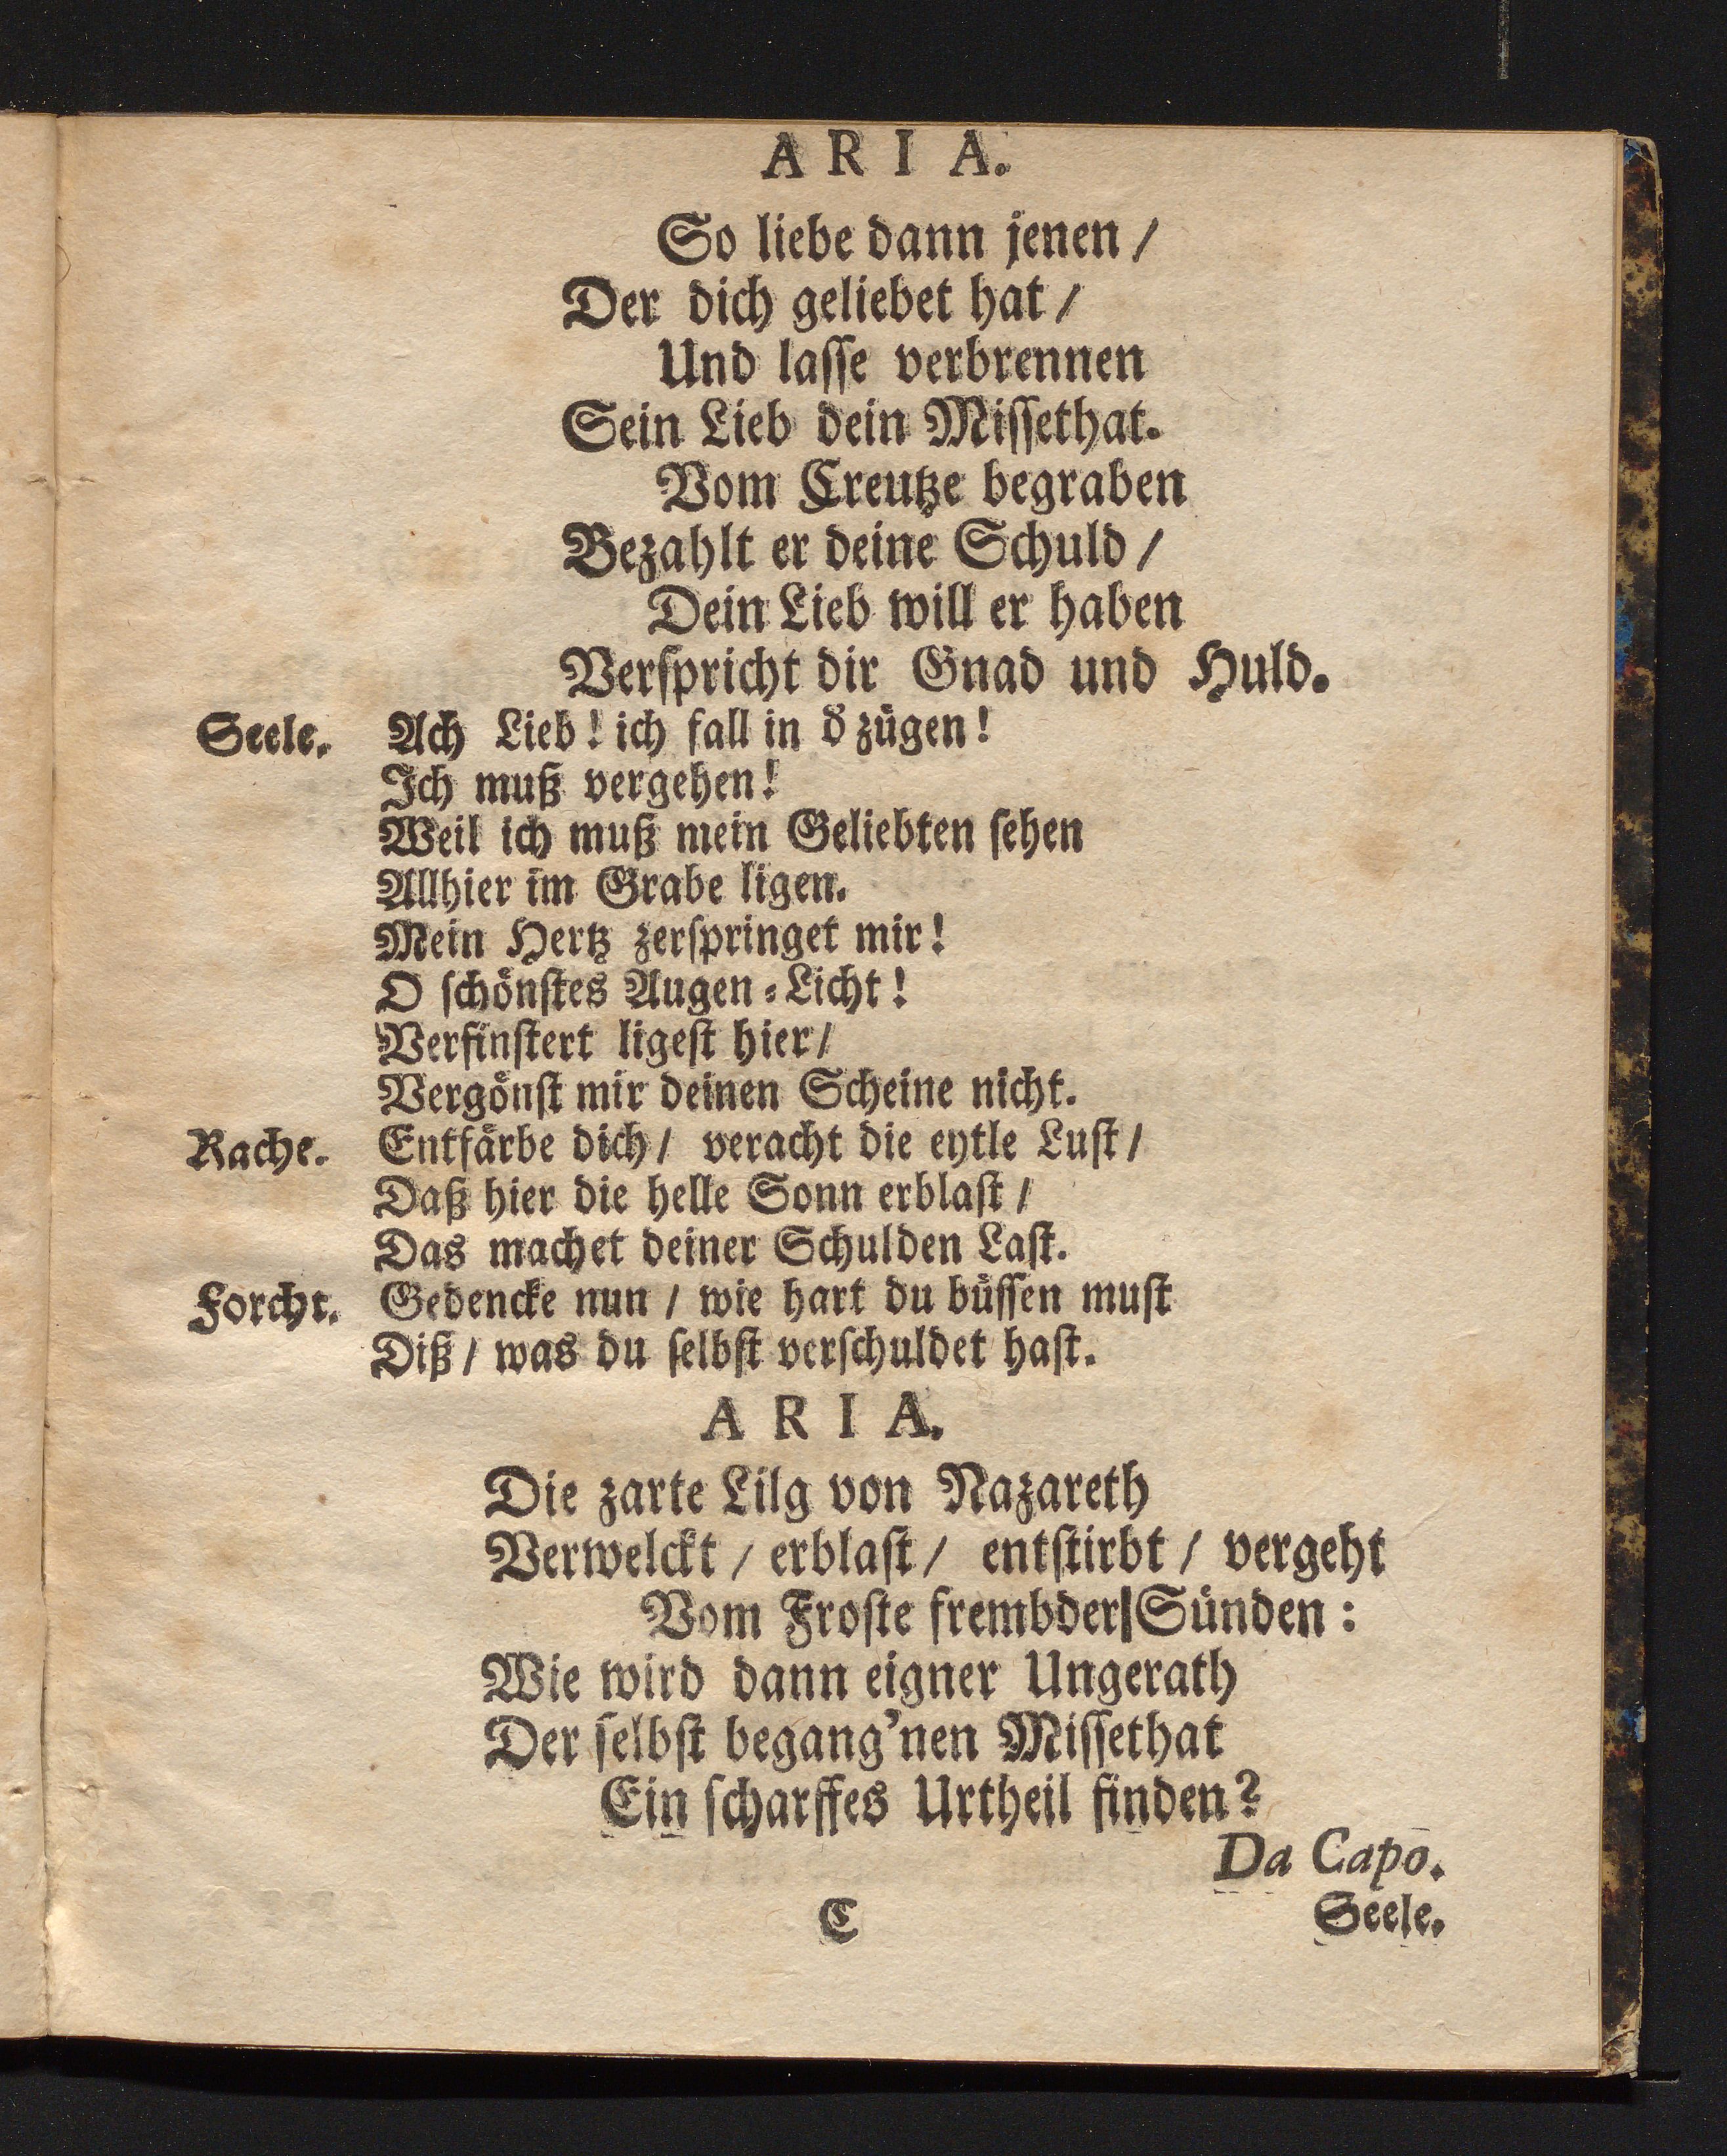 ARIA.
So liebe dann jenen /
Der dich geliebet hat /
Und laſſe verbrennen
Sein Lieb dein Miſſethat.
Vom Creutze begraben
Bezahlt er deine Schuld /
Dein Lieb will er haben
Verſpricht dir Gnad und Huld.
Seele. Ach Lieb! ich fall in d̈ zuͤgen!
Ich muß vergehen!
Weil ich muß mein Geliebten ſehen
Allhier im Grabe ligen.
Mein Hertz zerſpringet mir!
O ſchoͤnſtes Augen⸗Licht!
Verfinſtert ligeſt hier /
Vergoͤnſt mir deinen Scheine nicht.
Rache. Entfaͤrbe dich / veracht die eytle Luſt /
Daß hier die helle Sonn erblaſt /
Das machet deiner Schulden Laſt.
Forcht. Gedencke nun / wie hart du buͤſſen muſt
Diß / was du ſelbſt verſchuldet haſt.
ARIA.
Die zarte Lilg von Nazareth
Verwelckt / erblaſt / entſtirbt / vergeht
Vom Froſte frembder|Suͤnden:
Wie wird dann eigner Ungerath
Der ſelbſt begang'nen Miſſethat
Ein ſcharffes Urtheil finden?
Da Capo.
C Seele.